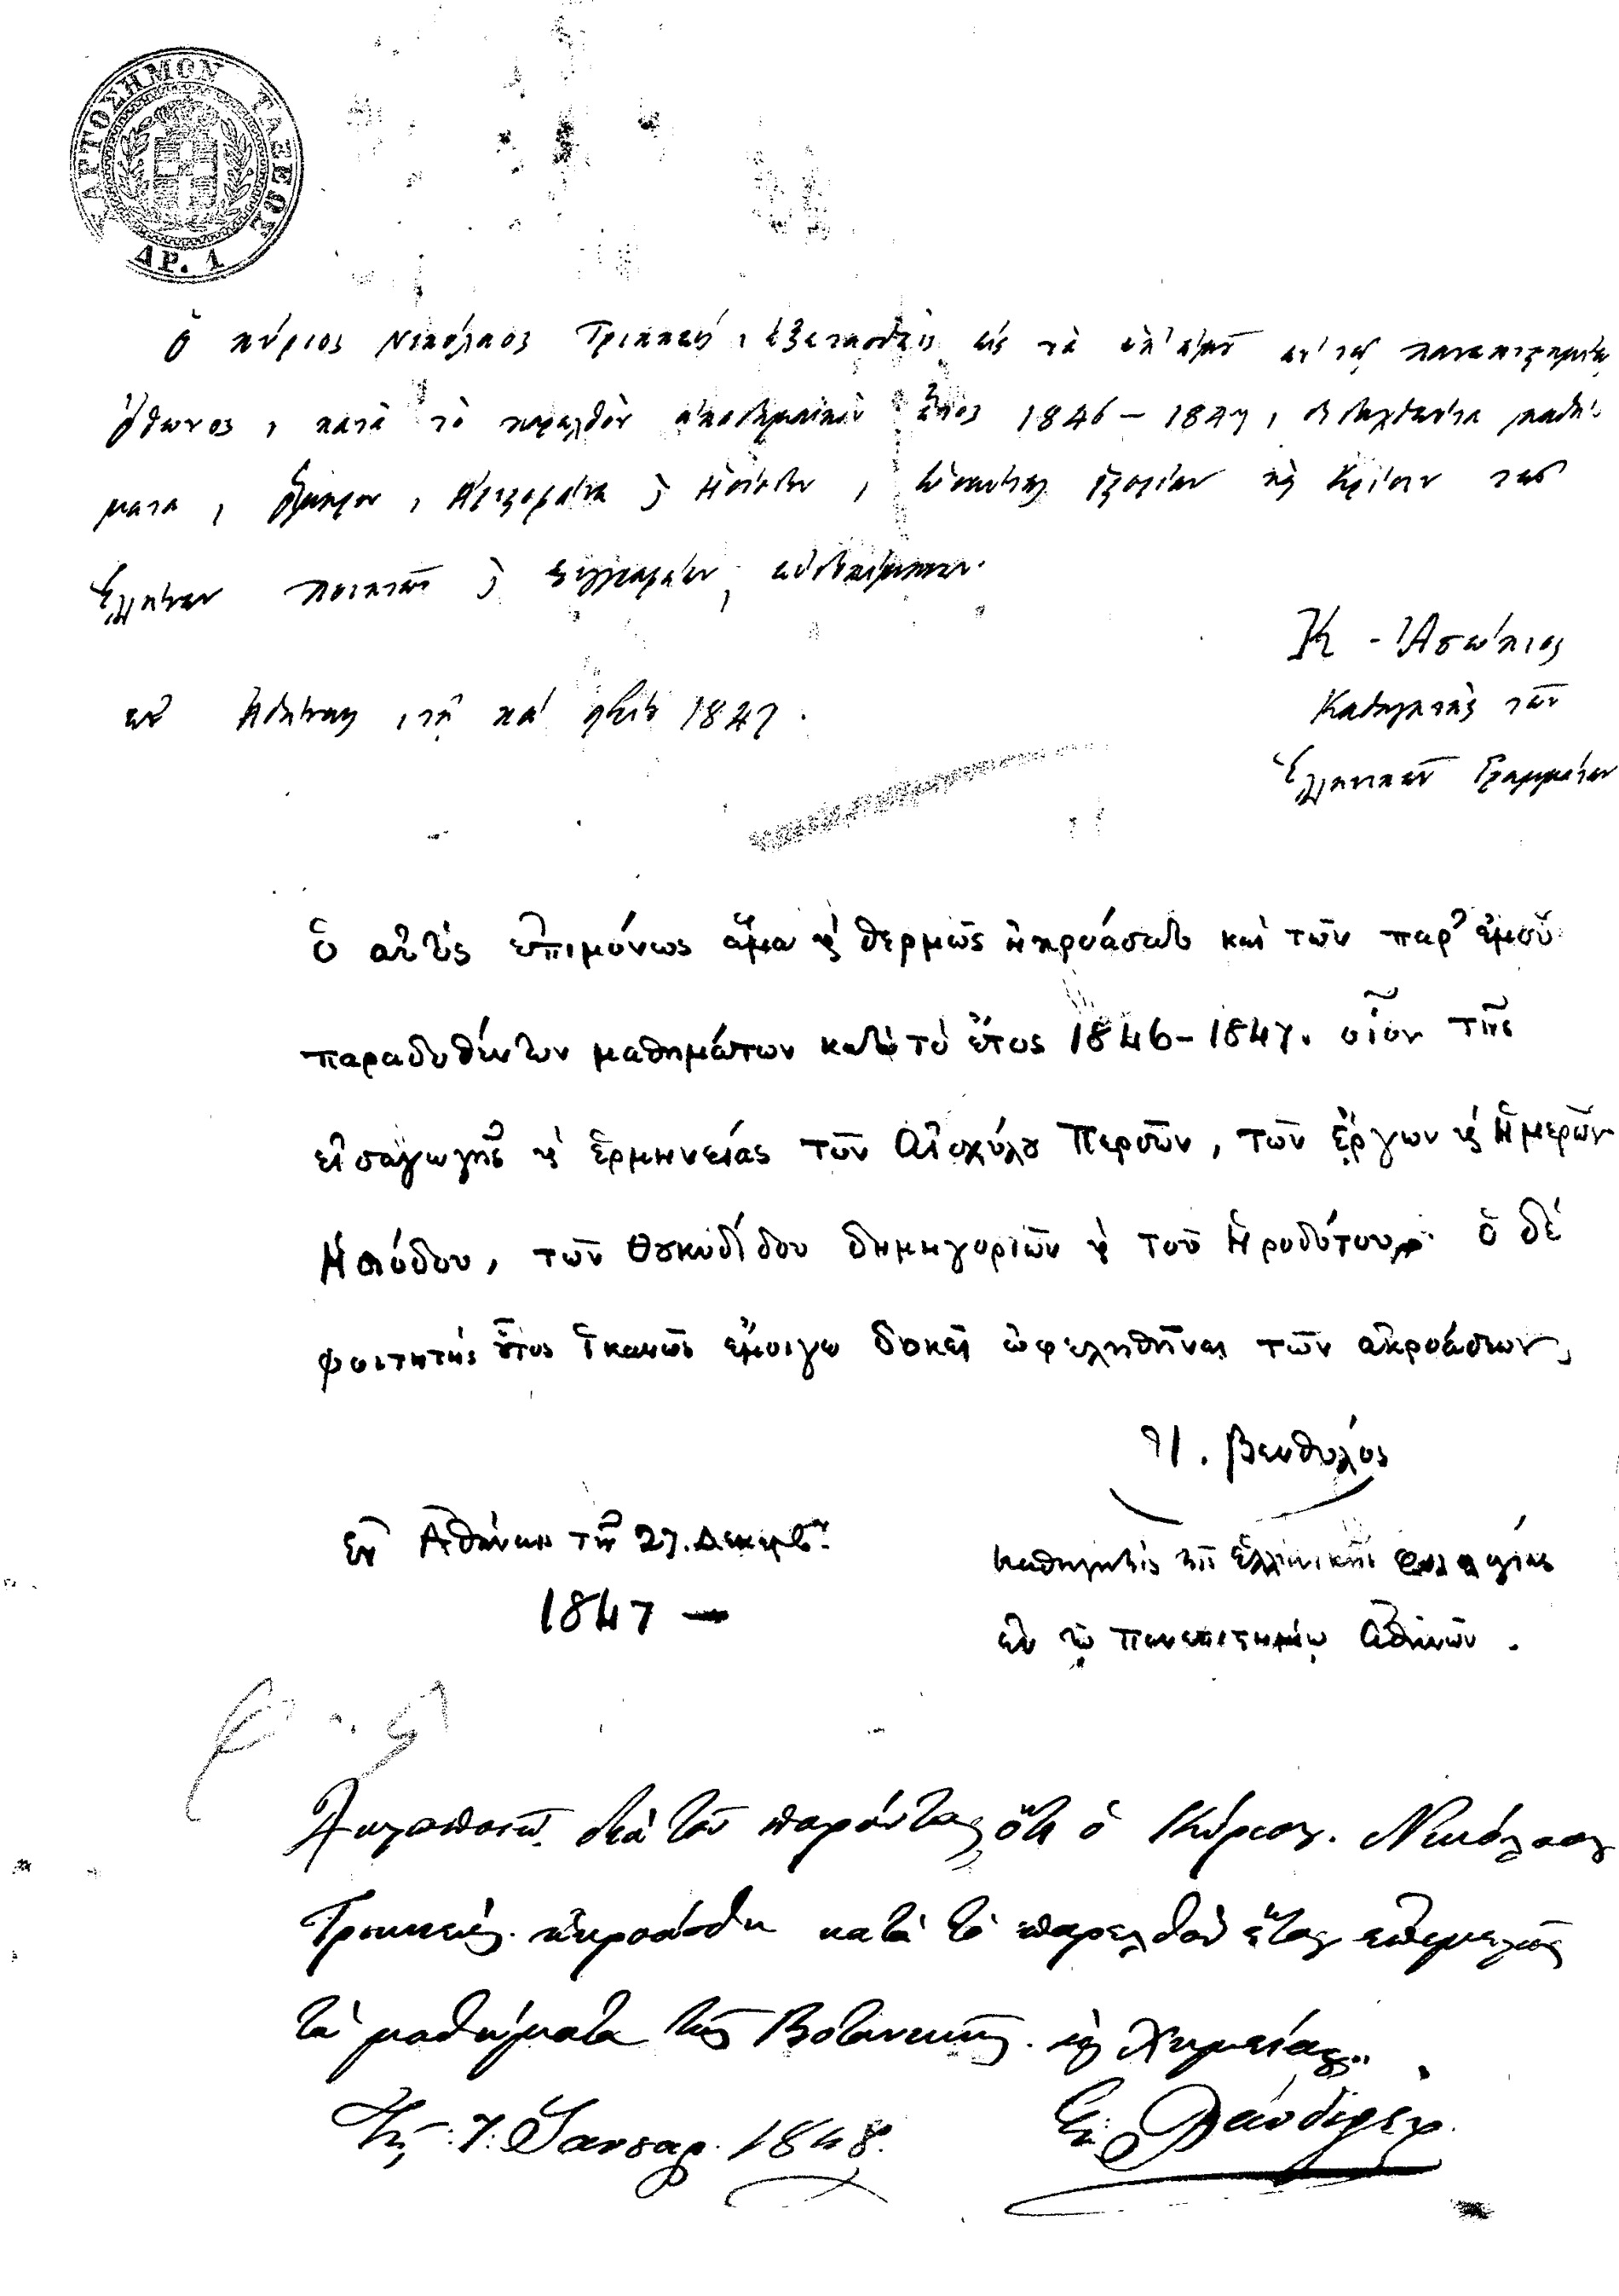 ΧΑΡΤΟΣΗΜΟΝ ΤΑΞΕΩΣ
ΔΡ. 1
Ὁ κύριος Νικόλαος Τρικκεύς, ἐξετασθεὶς εἰς τὰ ὑπ' ἐμοῦ ἐν τῷ πανεπιστημίῳ
Ὄθωνος, κατὰ τὸ παρελθὸν ἀκαδημαϊκὸν ἔτος 1846 – 1847, διδαχθέντα μαθή
ματα, Ὅμηρον, Ἀριστοφάνην ϗ Ἡσίοδον, ὡσαύτως ἱστορίαν ϗ κρίσιν τῶν
Ἑλλήνων ποιητῶν ϗ συγγραφέων, εὐδοκίμησεν.
Κ. Ἀσώπιος
ἐν Ἀθήναις, τῇ κα' 1847.
Καθηγητὴς τῶν
Ἑλληνικῶν Γραμμάτων
ὁ αὐτὸς ἐπιμόνως ἅμα ϗ θερμῶς ἠκροάσατο καὶ τῶν παρ' ἐμοῦ
παραδοθέντων μαθημάτων κατὰ τὸ ἔτος 1846-1847. οἷον τῆς
εἰσαγωγῆς ϗ ἑρμηνείας τῶν Αἰσχύλου Περσῶν, τῶν ἔργων ϗ Ἡμερῶν
Ἡσιόδου, τῶν Θουκυδίδου δημηγοριῶν ϗ τοῦ Ἡροδότου· ὁ δὲ
φοιτητὴς οὗτος ἱκανῶς ἔμοιγε δοκεῖ ὠφεληθῆναι τῶν ἀκροάσεων,
Ἰ. Βενθύλος
ἐν Ἀθήναις τῇ 27. Δεκεμβ.
1847 —
καθηγητὴς τῆς ἑλληνικῆς φιλολογίας
ἐν τῷ Πανεπιστημίῳ Ἀθηνῶν.
διὰ τοῦ παρόντος, ὅτι ὁ Κύριος. Νικόλαος
Τρικκεύς. ἠκροάσθη κατὰ τὸ παρελθὸν ἔτος ἐπιμελῶς
τὰ μαθήματα τῆς Βοτανικῆς. ϗ Χημείας.
Τῇ 7. Ἰανουαρ. 1848.
Ξ. Λάνδερερ.